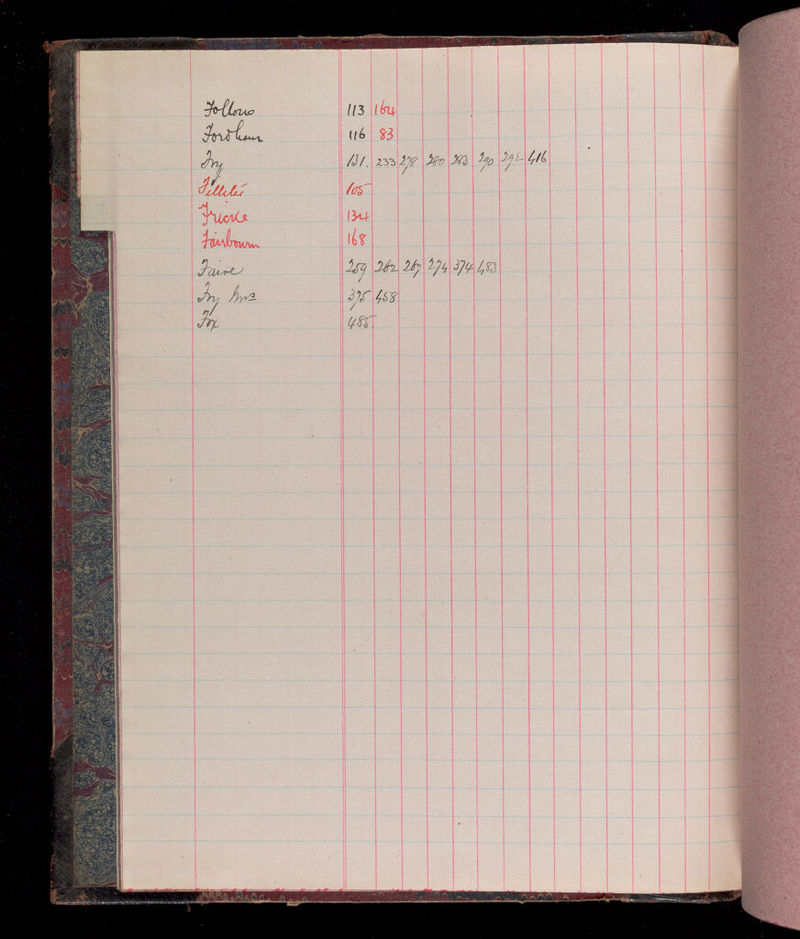 Follows 113 164
Fordham 116 83
Fry 131. 233 278 280 283 290 292 416
Filliter 105
Fricke 134
Fairbourn 168
Faire 259 262 267 274 374 483
Fry Mrs 375 458
Fox 485.